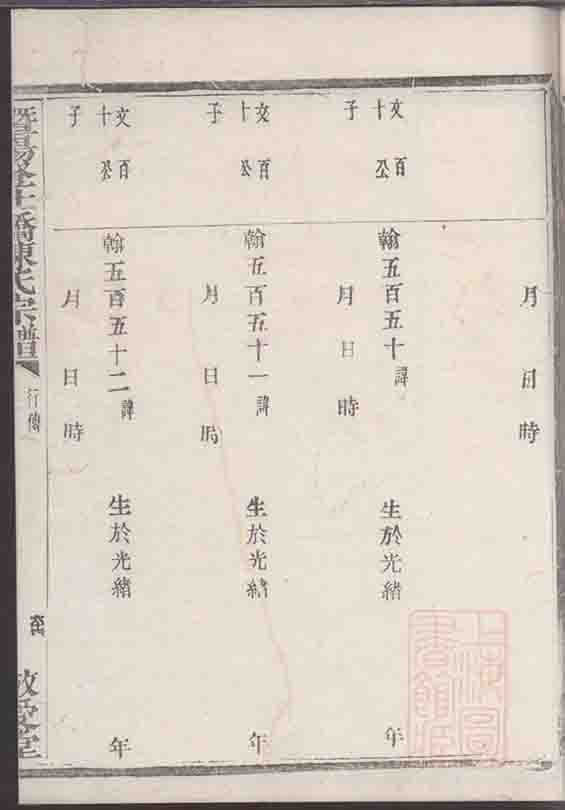 月日時
文百
十公
子
翰五百五十諱 生於光緒 年
月日時
文百
十公
子
翰五百五十一諱 生於光緒 年
月日時
文百
十公
子
翰五百五十二諱 生於光緒 年
月日時
暨陽 橋陳氏宗譜
行傳
敬愛堂
上海圖書館藏